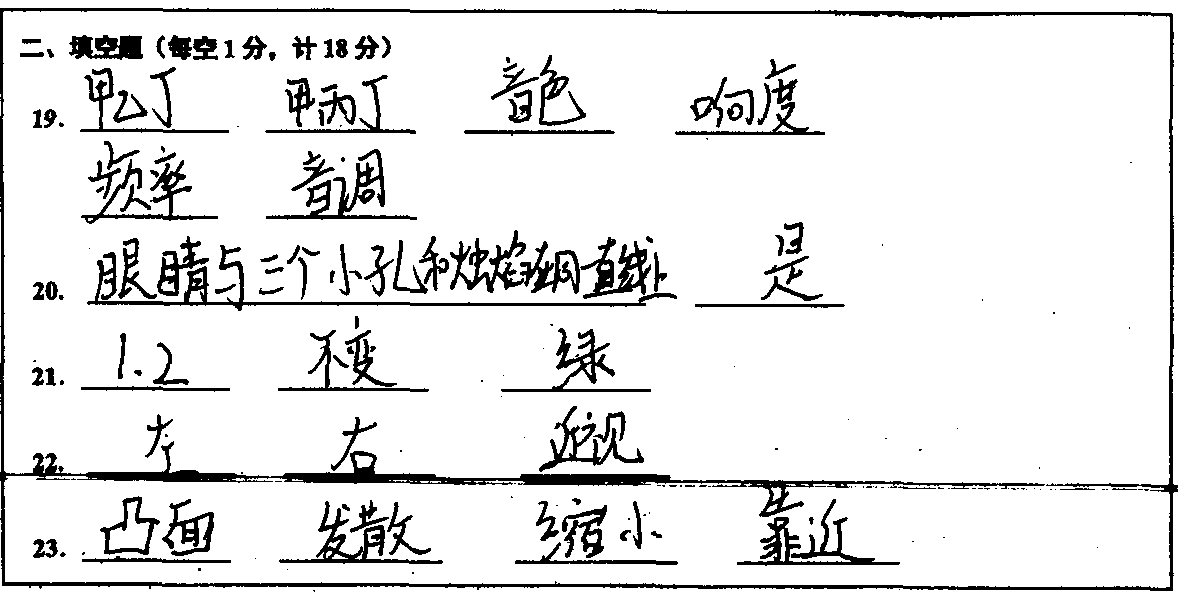 二、填空题（每空1分，计18分）
19. 甲乙丁 甲丙丁 音色 响度
频率 音调
20. 眼睛与三个小孔和烛焰在同一直线上 是
21. 1.2 不变 绿
22. 左 右 近视
23. 凸面 发散 缩小 靠近